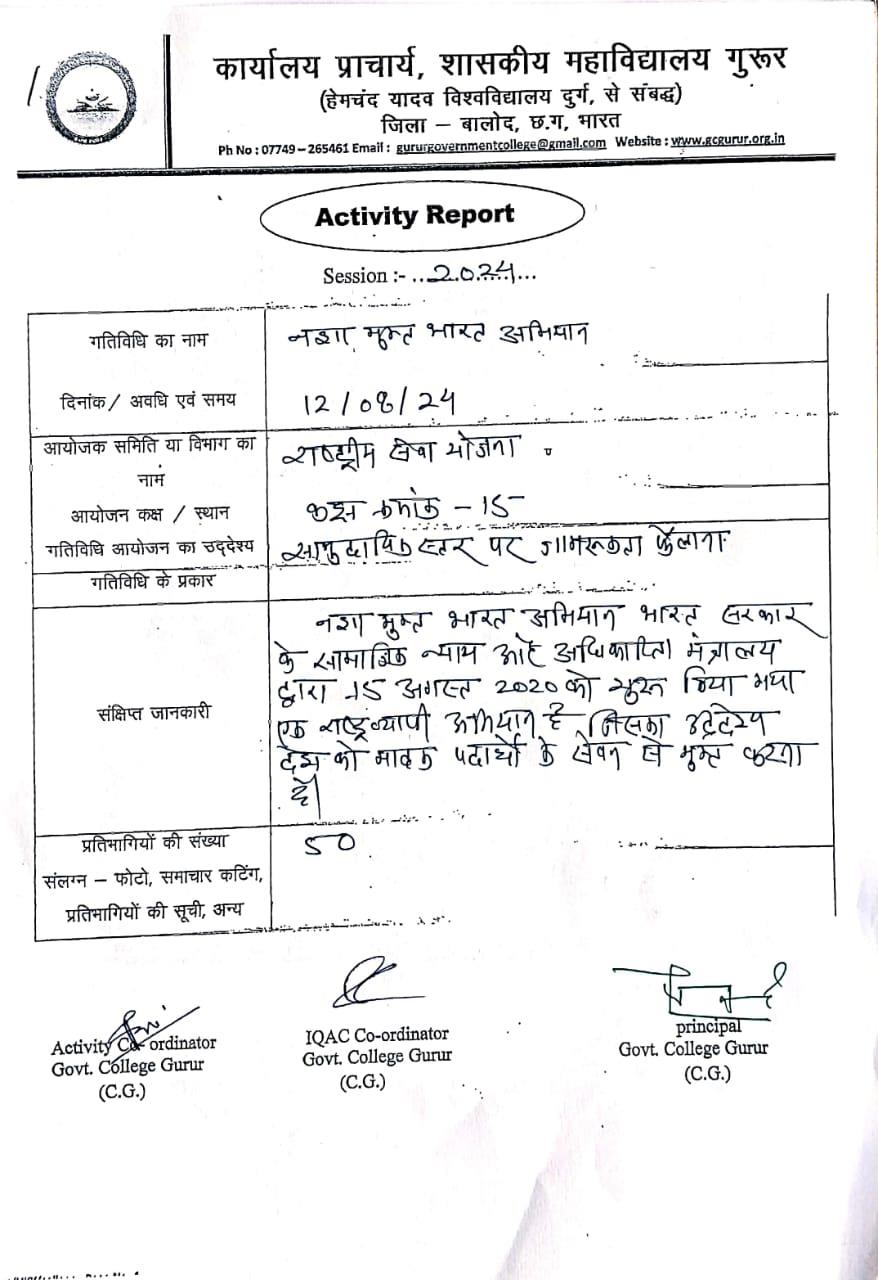 कार्यालय प्राचार्य, शासकीय महाविद्यालय गुरूर
(हेमचंद यादव विश्वविद्यालय दुर्ग, से संबद्ध)
जिला – बालोद, छ.ग, भारत
Ph No : 07749 – 265461 Email : gururgovernmentcollege@gmail.com Website : www.gcgurur.org.in
Activity Report
Session :- ..2024...
गतिविधि का नाम नशा मुक्त भारत अभियान
दिनांक / अवधि एवं समय 12/08/24
आयोजक समिति या विभाग का राष्ट्रीय सेवा योजना
नाम
आयोजन कक्ष / स्थान कक्ष क्रमांक - 15
गतिविधि आयोजन का उद्देश्य सामुदायिक स्तर पर जागरूकता फैलाना
गतिविधि के प्रकार
संक्षिप्त जानकारी
नशा मुक्त भारत अभियान भारत सरकार
के सामाजिक न्याय और अधिकारिता मंत्रालय
द्वारा 15 अगस्त 2020 को शुरू किया गया
एक राष्ट्रव्यापी अभियान है जिसका उद्देश्य
देश को मादक पदार्थों के सेवन से मुक्त करना
है।
प्रतिभागियों की संख्या 50
संलग्न – फोटो, समाचार कटिंग,
प्रतिभागियों की सूची, अन्य
Activity Co- ordinator
Govt. College Gurur
(C.G.)
IQAC Co-ordinator
Govt. College Gurur
(C.G.)
principal
Govt. College Gurur
(C.G.)